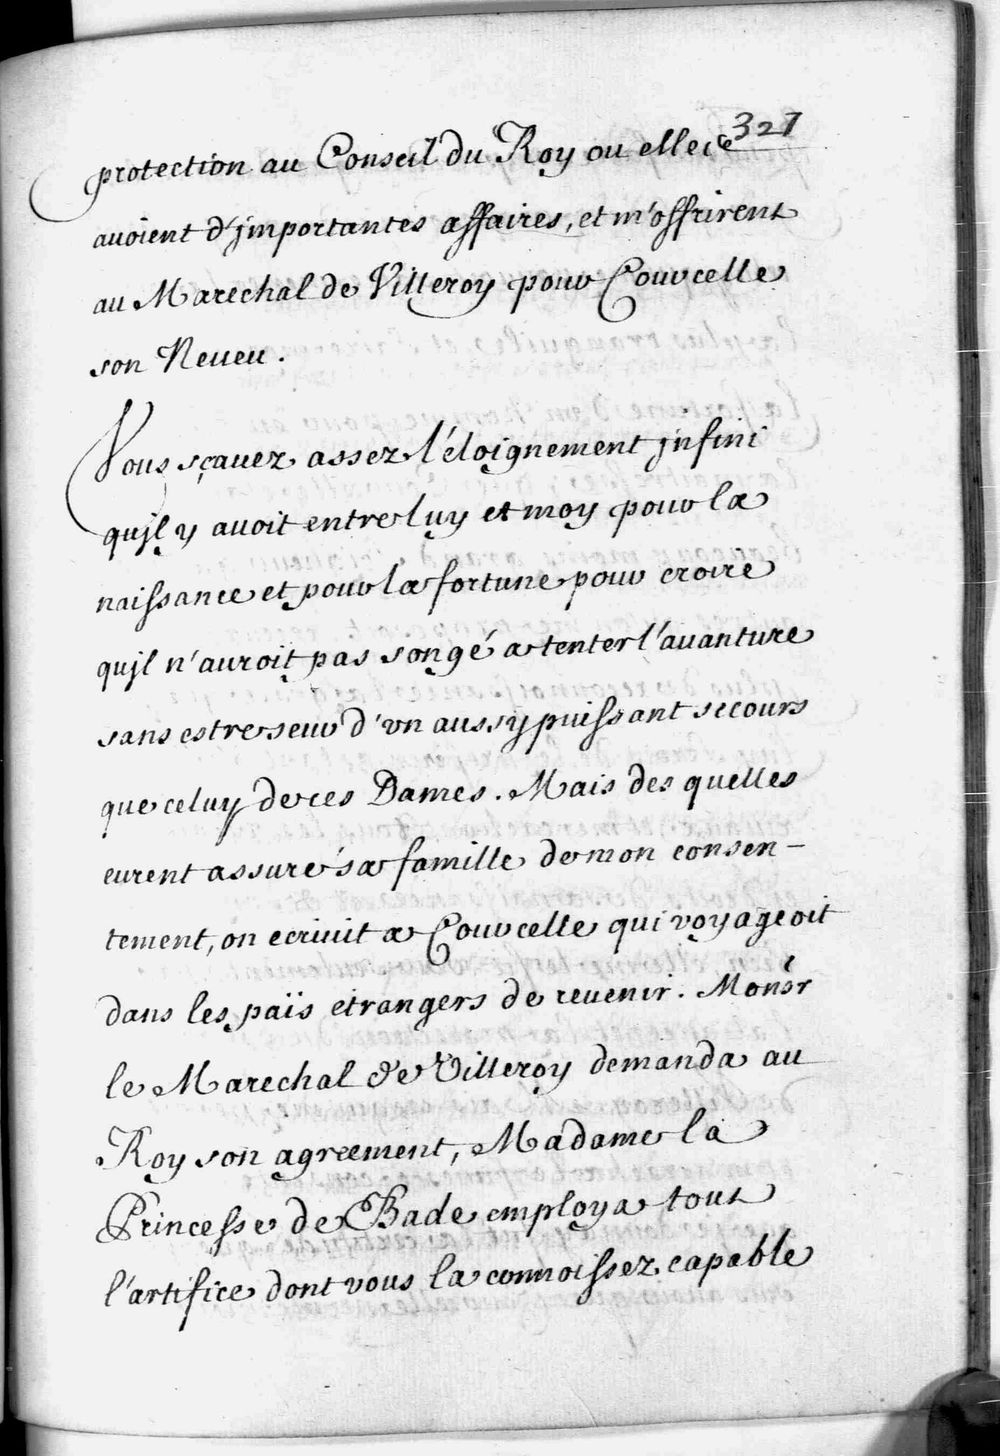 327
protection au Conseil du Roy ou elles
avoient d'jmportantes affaires, et m'offrirent
au Marechal de Villeroy pour Courcelle
son Neveu.
Vous sçavez assez l'éloignement jnfini
qujl y avoit entre luy et moy pour la
naissance et pour la fortune pour croire
qujl n'auroit pas songé a tenter l'avanture
sans estre seur d'vn aussy puissant secours
que celuy de ces Dames. Mais des quelles
eurent assuré sa famille de mon consen-
tement, on ecrivit a Courcelle qui voyageoit
dans les païs etrangers de revenir. Monsr
le Marechal de Villeroy demanda au
Roy son agreement, Madame la
Princesse de Bade employa tout
l'artifice dont vous la connoissez capable